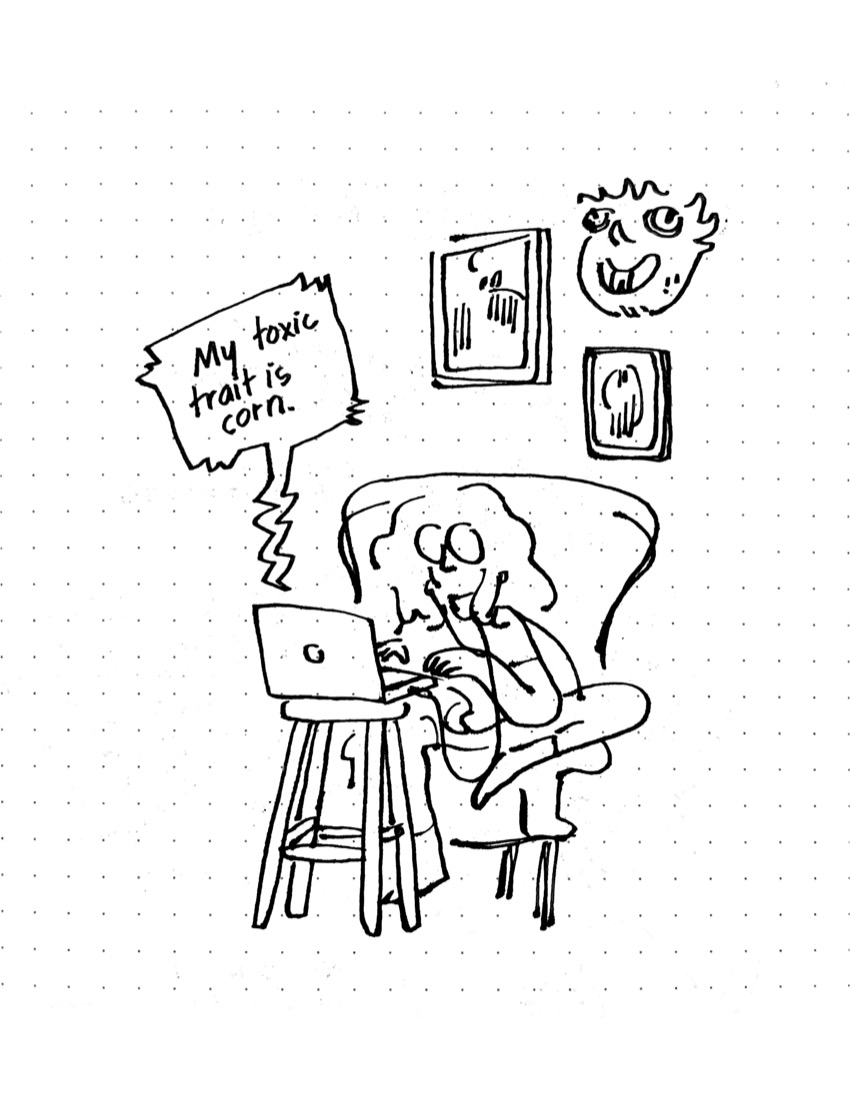 My toxic
trait is
corn.